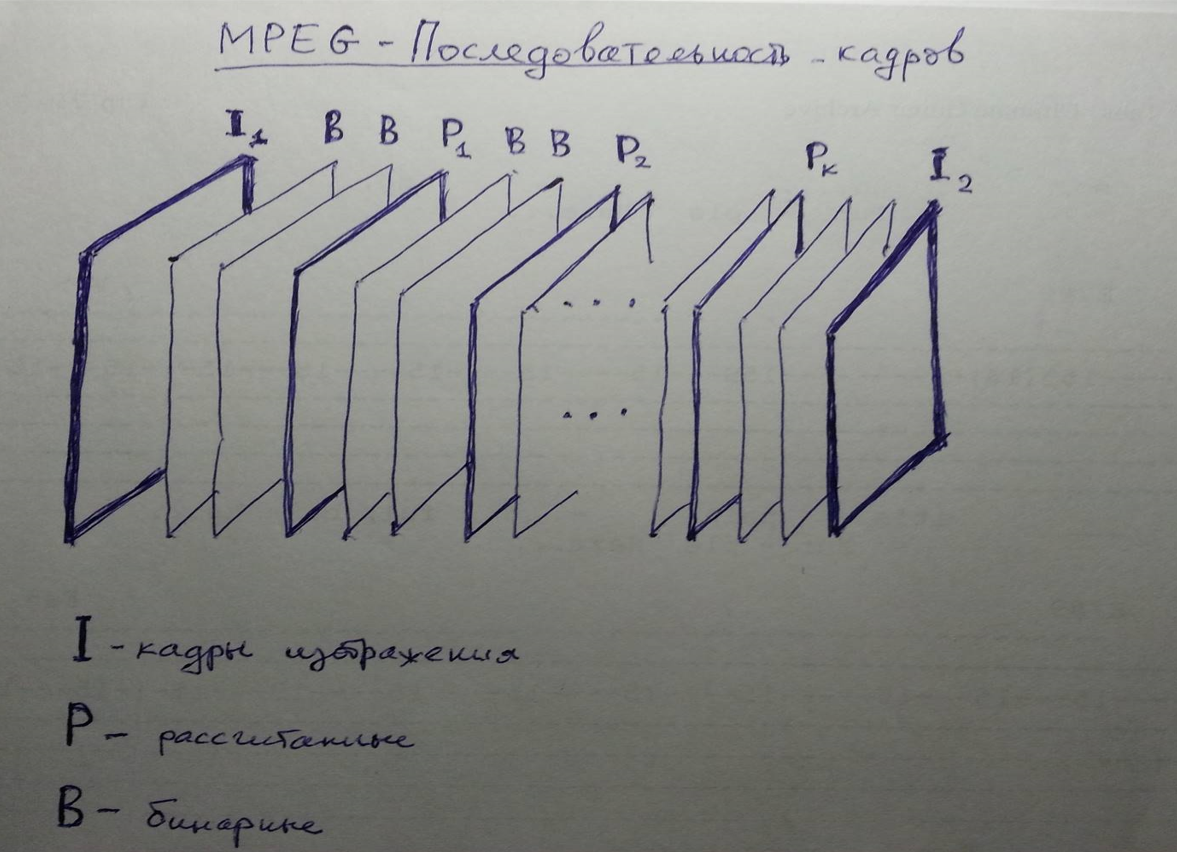 MPEG - Последовательность - кадров
I1 B B P1 B B P2 Pк I2
... 
...
I - кадры изображения
P - рассчитанные
B - бинарные